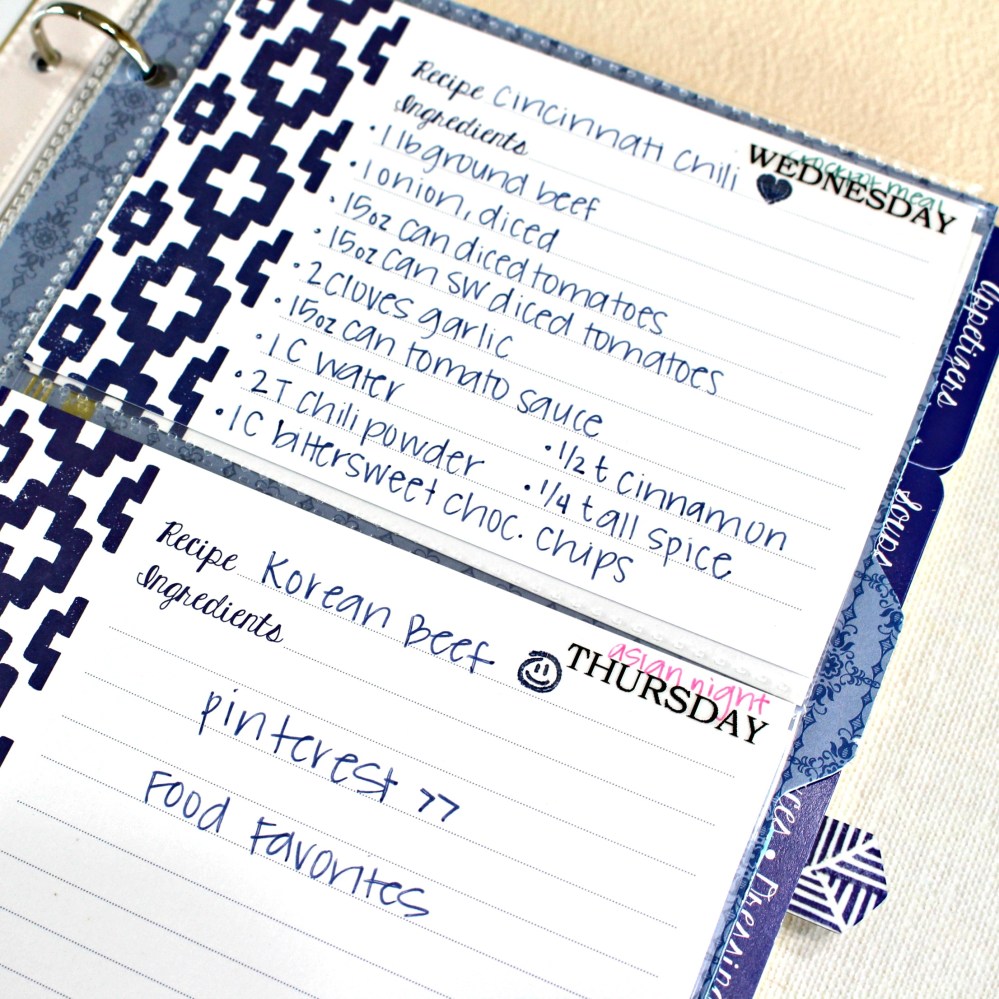 Recipe Cincinnati Chili
crockpot meal
WEDNESDAY
Ingredients
• 1 lb ground beef
• 1 onion, diced
• 15oz can diced tomatoes
• 15oz can SW diced tomatoes
• 2 cloves garlic
• 15oz can tomato sauce
• 1 C water
• 2 T chili powder
• 1/2 t cinnamon
• 1 C bittersweet choc. chips
• 1/4 t all spice
Recipe Korean Beef
asian night
THURSDAY
Ingredients
pinterest >>
Food Favorites
Appetizers
Soups